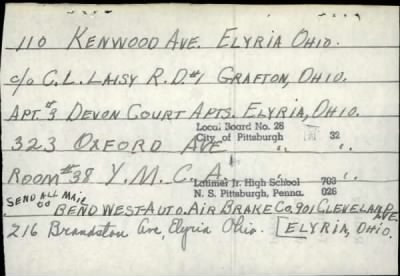 110 KENWOOD AVE. ELYRIA OHIO.
c/o C.L. LAISY R.D.#1 GRAFTON, OHIO.
APT.#3 DEVON COURT APTS. ELYRIA, OHIO.
Local Board No. 28 32
City of Pittsburgh
323 OXFORD AVE " "
ROOM #38 Y.M.C.A. " "
Latimer Jr. High School 703
N. S. Pittsburgh, Penna. 026
SEND ALL MAIL
c/o BENDWEST-AUTO. AIR BRAKE CO. 901 CLEVELAND AVE.
216 Ave, Elyria Ohio. [ELYRIA, OHIO.